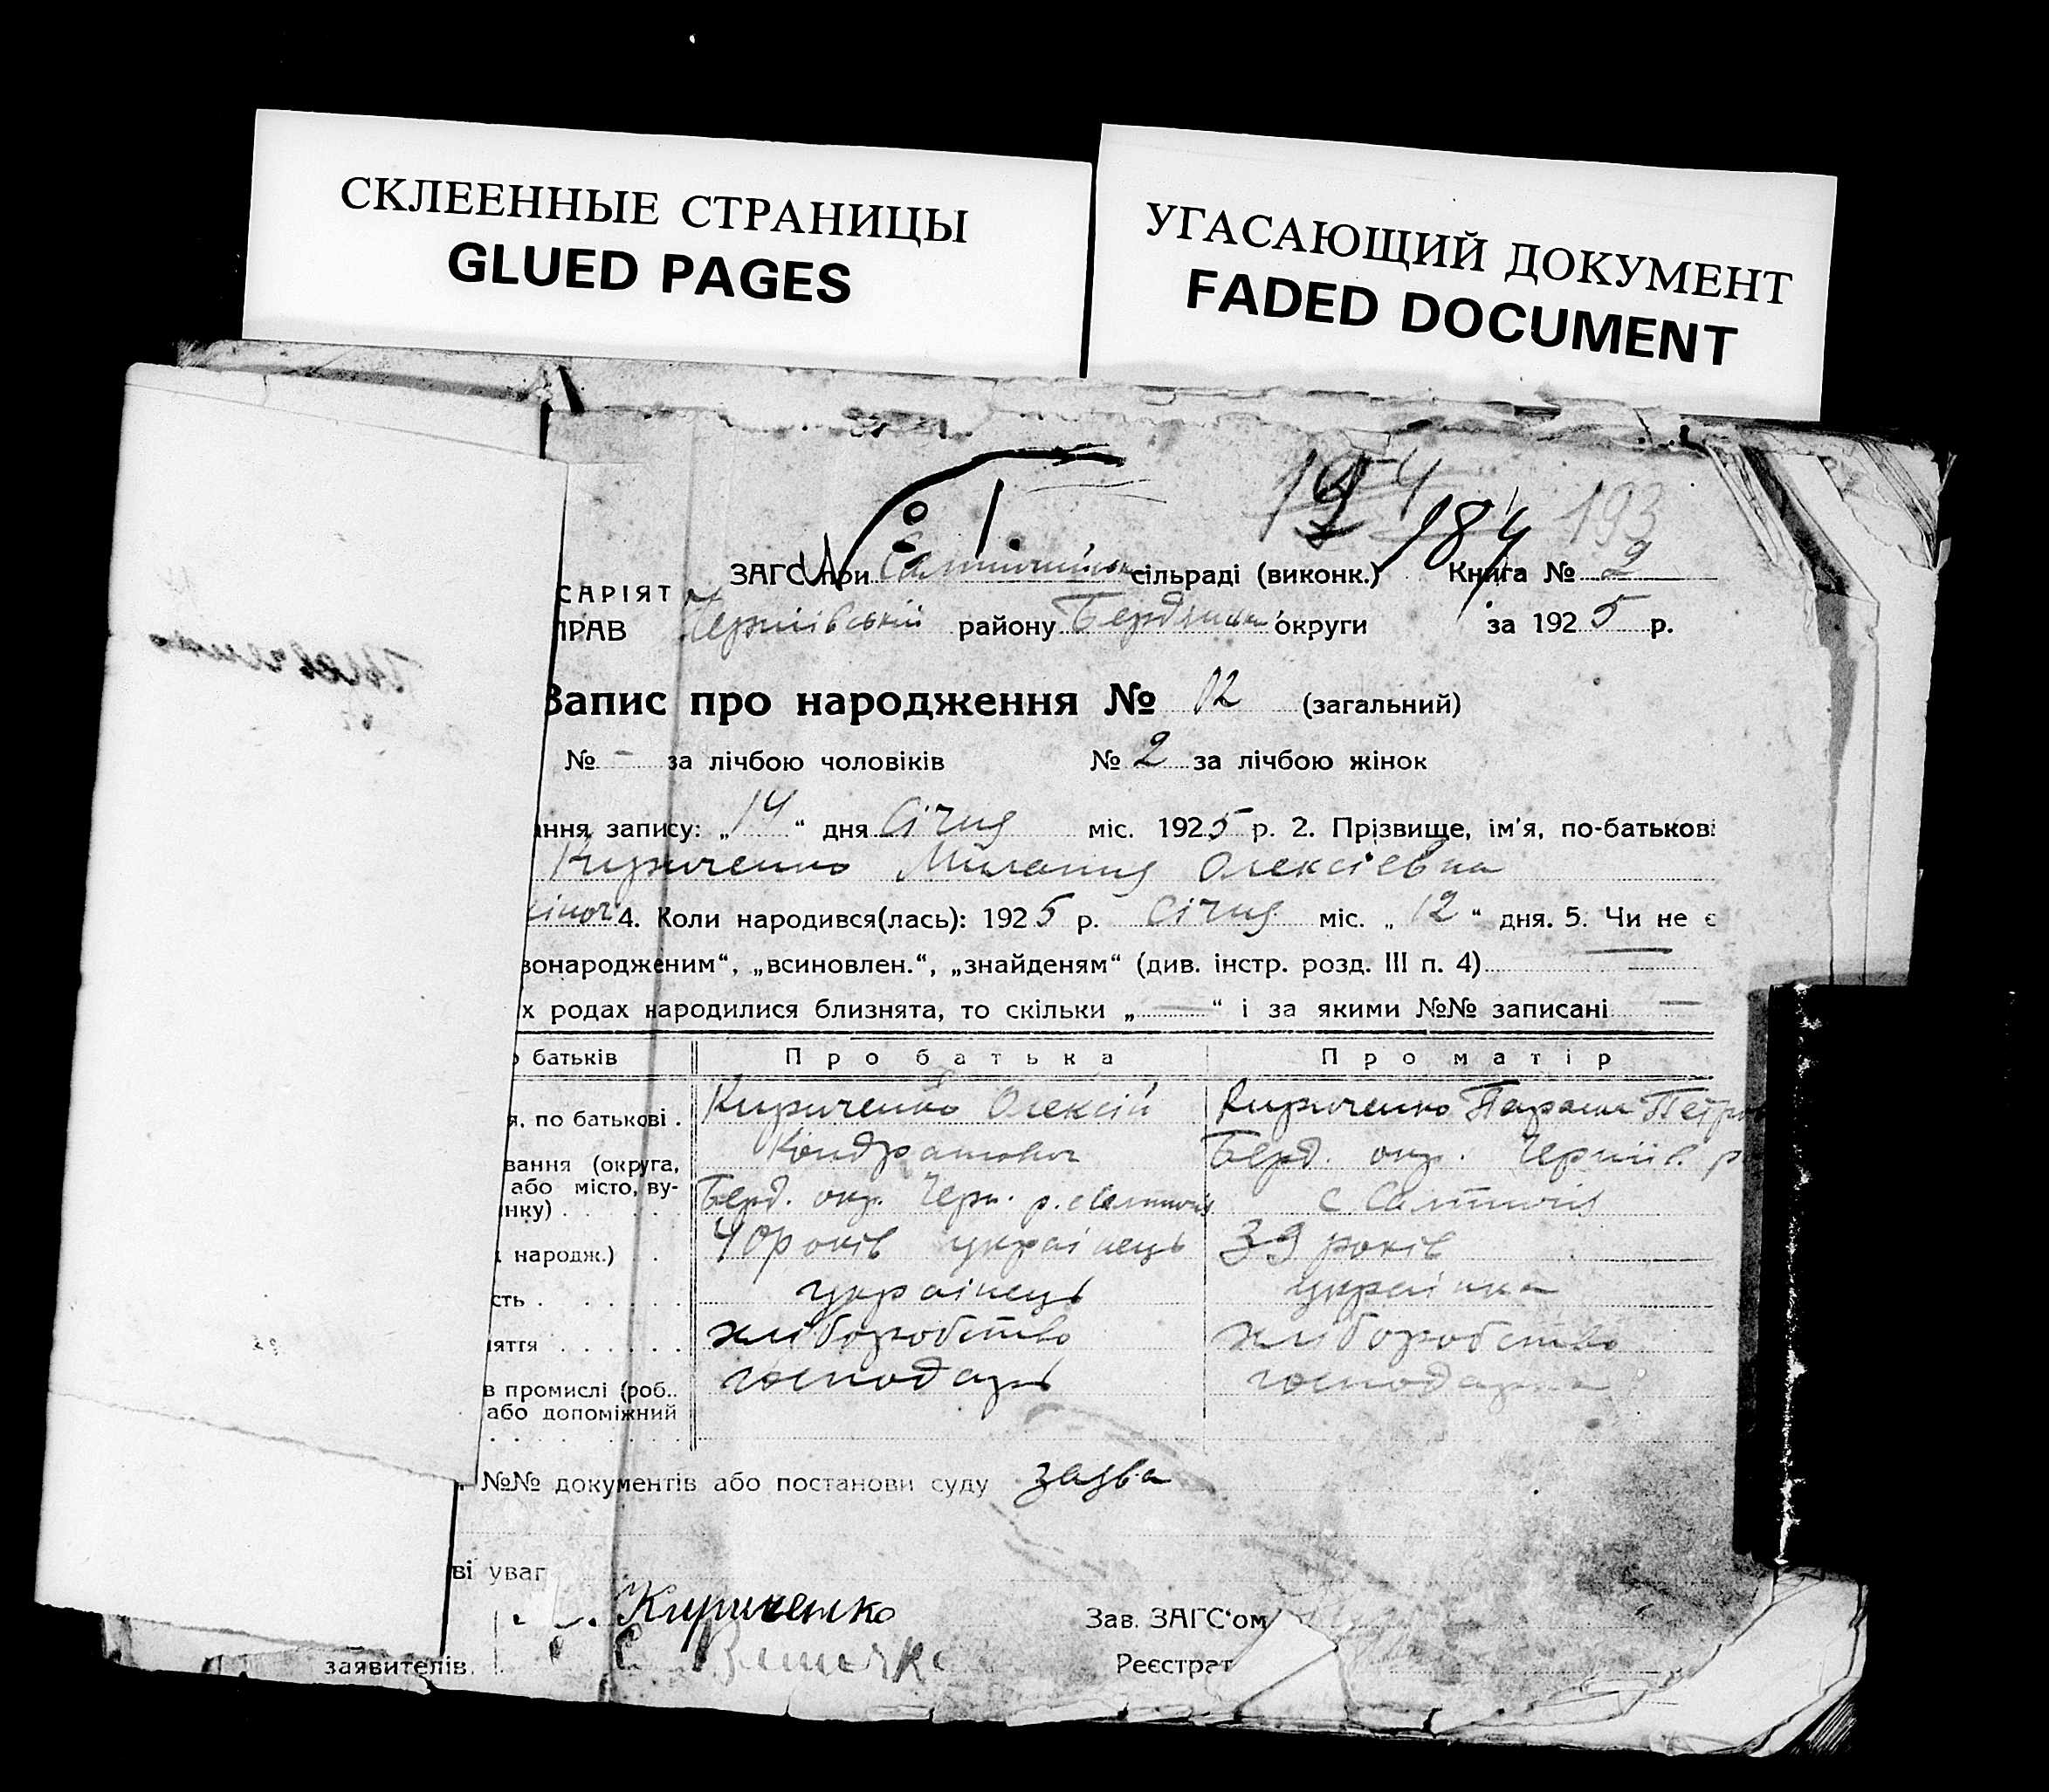 СКЛЕЕННЫЕ СТРАНИЦЫ
GLUED PAGES
УГАСАЮЩИЙ ДОКУМЕНТ
FADED DOCUMENT
184 193
ЗАГС при сільраді (виконк.) Книга № 2
САРІЯТ
ПРАВ Чернігівській району Бердянськ округи за 1925 р.
Запис про народження № 12 (загальний)
№ - за лічбою чоловіків № 2 за лічбою жінок
ання запису: „14“ дня Січня міс. 1925 р. 2. Прізвище, ім'я, по-батькові
Кириченко Миланія Олексієвна
4. Коли народився(лась): 1925 р. Січня міс. „12“ дня. 5. Чи не є
вонародженим“, „всиновлен.“, „знайденям“ (див. інстр. розд. III п. 4) —
х родах народилися близнята, то скільки „—“ і за якими №№ записані —
батьків Про батька Про матір
я, по батькові . Кириченко Олексій Кириченко Параска Петр
Кондратович
вання (округа, або місто, ву- нку) . Берд. окр. Черн. р. с Салтичія Берд. окр. Черніг. р
с Салтичія
народж.) . 40 років українець 39 років
сть . українець українка
яття . хліборобство хліборобство
в промислі (роб.. або допоміжний господарь господарка
№№ документів або постанови суду заява
ві уваг
Кириченко Зав. ЗАГС'ом
заявителів. Реєстрат